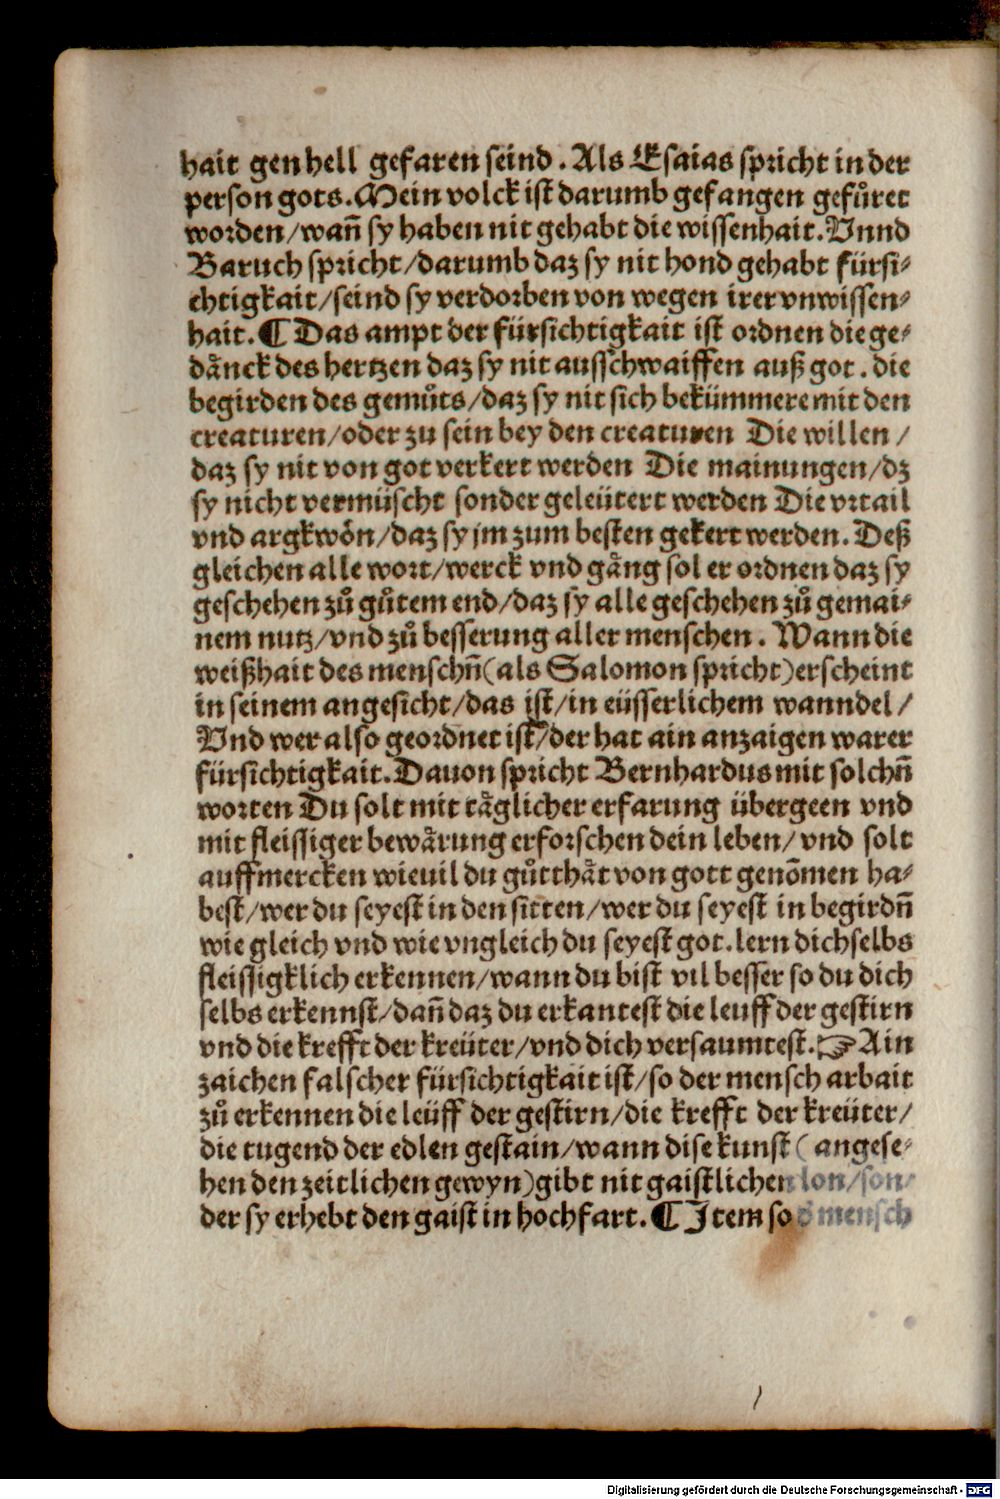 hait gen hell gefaren seind. Als Esaias spricht in der
person gots. Mein volck ist darumb gefangen gefůret
worden/wañ sy haben nit gehabt die wissenhait. Vnnd
Baruch spricht/darumb daz sy nit hond gehabt fürsi-
chtigkait/seind sy verdorben von wegen irer vnwissen-
hait. ¶ Das ampt der fürsichtigkait ist ordnen die ge-
dånck des hertzen daz sy nit aussschwaiffen auß got. die
begirden des gemůts/daz sy nit sich bekümmere mit den
creaturen/oder zu sein bey den creaturen Die willen/
daz sy nit von got verkert werden Die mainungen/dz
sy nicht vermüscht sonder geleütert werden Die vrtail
vnd argkwôn/daz sy jm zum besten gekert werden. Deß
gleichen alle wort/werck vnd gång sol er ordnen daz sy
geschehen zů gůtem end/daz sy alle geschehen zů gemai-
nem nutz/vnd zů besserung aller menschen. Wann die
weißhait des menschñ (als Salomon spricht) erscheint
in seinem angesicht/das ist/in eüsserlichem wanndel/
Vnd wer also geordnet ist/der hat ain anzaigen warer
fürsichtigkait. Dauon spricht Bernhardus mit solchñ
worten Du solt mit tåglicher erfarung übergeen vnd
mit fleissiger bewårung erforschen dein leben/vnd solt
auffmercken wieuil du gůtthåt von gott genõmen ha-
best/wer du seyest in den sitten/wer du seyest in begirdñ
wie gleich vnd wie vngleich du seyest got. lern dichselbs
fleissigklich erkennen/wann du bist vil besser so du dich
selbs erkennst/dañ daz du erkantest die leuff der gestirn
vnd die krefft der kreüter/vnd dich versaumtest. ☞ Ain
zaichen falscher fürsichtigkait ist/so der mensch arbait
zů erkennen die leüff der gestirn/die krefft der kreüter/
die tugend der edlen gestain/wann dise kunst (angese-
hen den zeitlichen gewyn) gibt nit gaistlichen lon/son-
der sy erhebt den gaist in hochfart. ¶ Item so d mensch
Digitalisierung gefördert durch die Deutsche Forschungsgemeinschaft - DFG